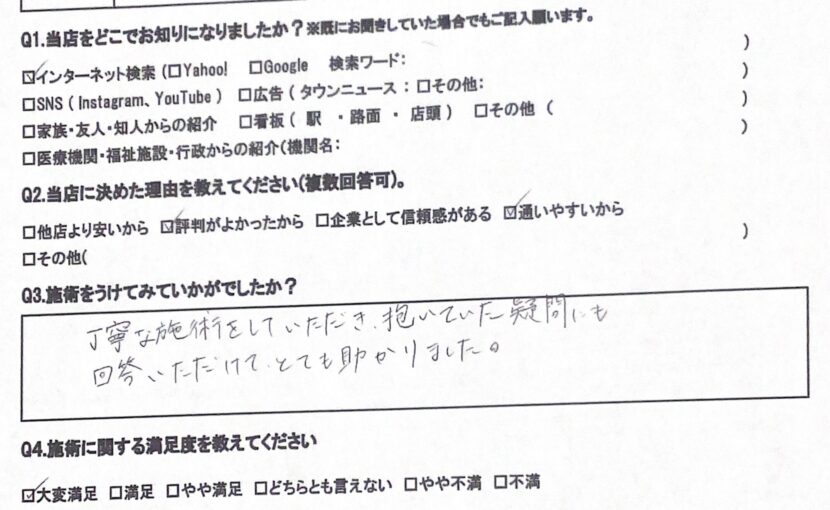 Q1.当店をどこでお知りになりましたか？※既にお聞きしていた場合でもご記入願います。
☑インターネット検索（□Yahoo!　□Google　検索ワード：　）
□SNS（Instagram、YouTube）　□広告（タウンニュース：□その他：　）
□家族・友人・知人からの紹介　□看板（駅・路面・店頭）　□その他（　）
□医療機関・福祉施設・行政からの紹介（機関名：　）
Q2.当店に決めた理由を教えてください（複数回答可）。
□他店より安いから　☑評判がよかったから　□企業として信頼感がある　☑通いやすいから
□その他（　）
Q3.施術をうけてみていかがでしたか？
丁寧な施術をしていただき、抱いていた疑問にも
回答いただけて、とても助かりました。
Q4.施術に関する満足度を教えてください
☑大変満足　□満足　□やや満足　□どちらとも言えない　□やや不満　□不満